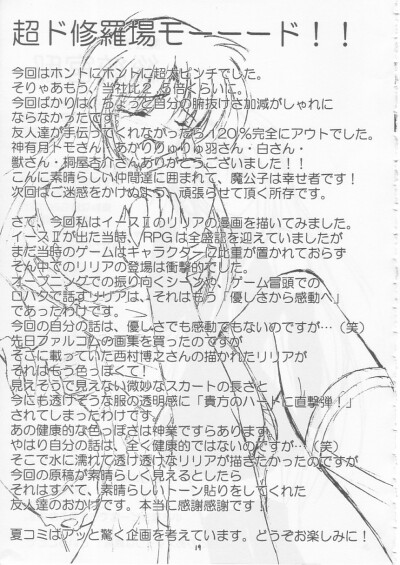 超ド修羅場モーーード！！
今回はホントにホントに超大ピンチでした。
そりゃあもう、当社比２．５倍くらいに。
今回ばかりはちょっと自分の腑抜けさ加減がしゃれに
ならなかったです。
友人達が手伝ってくれなかったら１２０％完全にアウトでした。
神有月トモさん、あかりりゅりゅ羽さん・白さん・
獣さん・桐屋杏介さんありがとうございました！！
こんに素晴らしい仲間達に囲まれて、魔公子は幸せ者です！
次回はご迷惑をかけぬよう、頑張らせて頂く所存です。
さて、今回私はイースⅡのリリアの漫画を描いてみました。
イースⅡが出た当時、ＲＰＧは全盛誌を迎えていましたが
まだ当時のゲームはキャラクターに比重が置かれておらず
そん中でのリリアの登場は衝撃的でした。
オープニングでの振り向くシーンや、ゲーム冒頭での
ロパクで話すリリアは、それはもう「優しさから感動へ」
であったわけです。
今回の自分の話は、優しさでも感動でもないのですが…（笑）
先日ファルコムの画集を買ったのですが
そこに載っていた西村博之さんの描かれたリリアが
それはもう色っぽくて！
見えそうで見えない微妙なスカートの長さと
今にも透けそうな服の透明感に「貴方のハートに直撃弾！」
されてしまったわけです。
あの健康的な色っぽさは神業ですらあります。
やはり自分の話は、全く健康的ではないのですが…（笑）
そこで水に濡れて透け透けなリリアが描きたかったのですが
今回の原稿が素晴らしく見えるとしたら
それはすべて、素晴らしいトーン貼りをしてくれた
友人達のおかげです。本当に感謝感謝です！
夏コミはアッと驚く企画を考えています。どうぞお楽しみに！
19